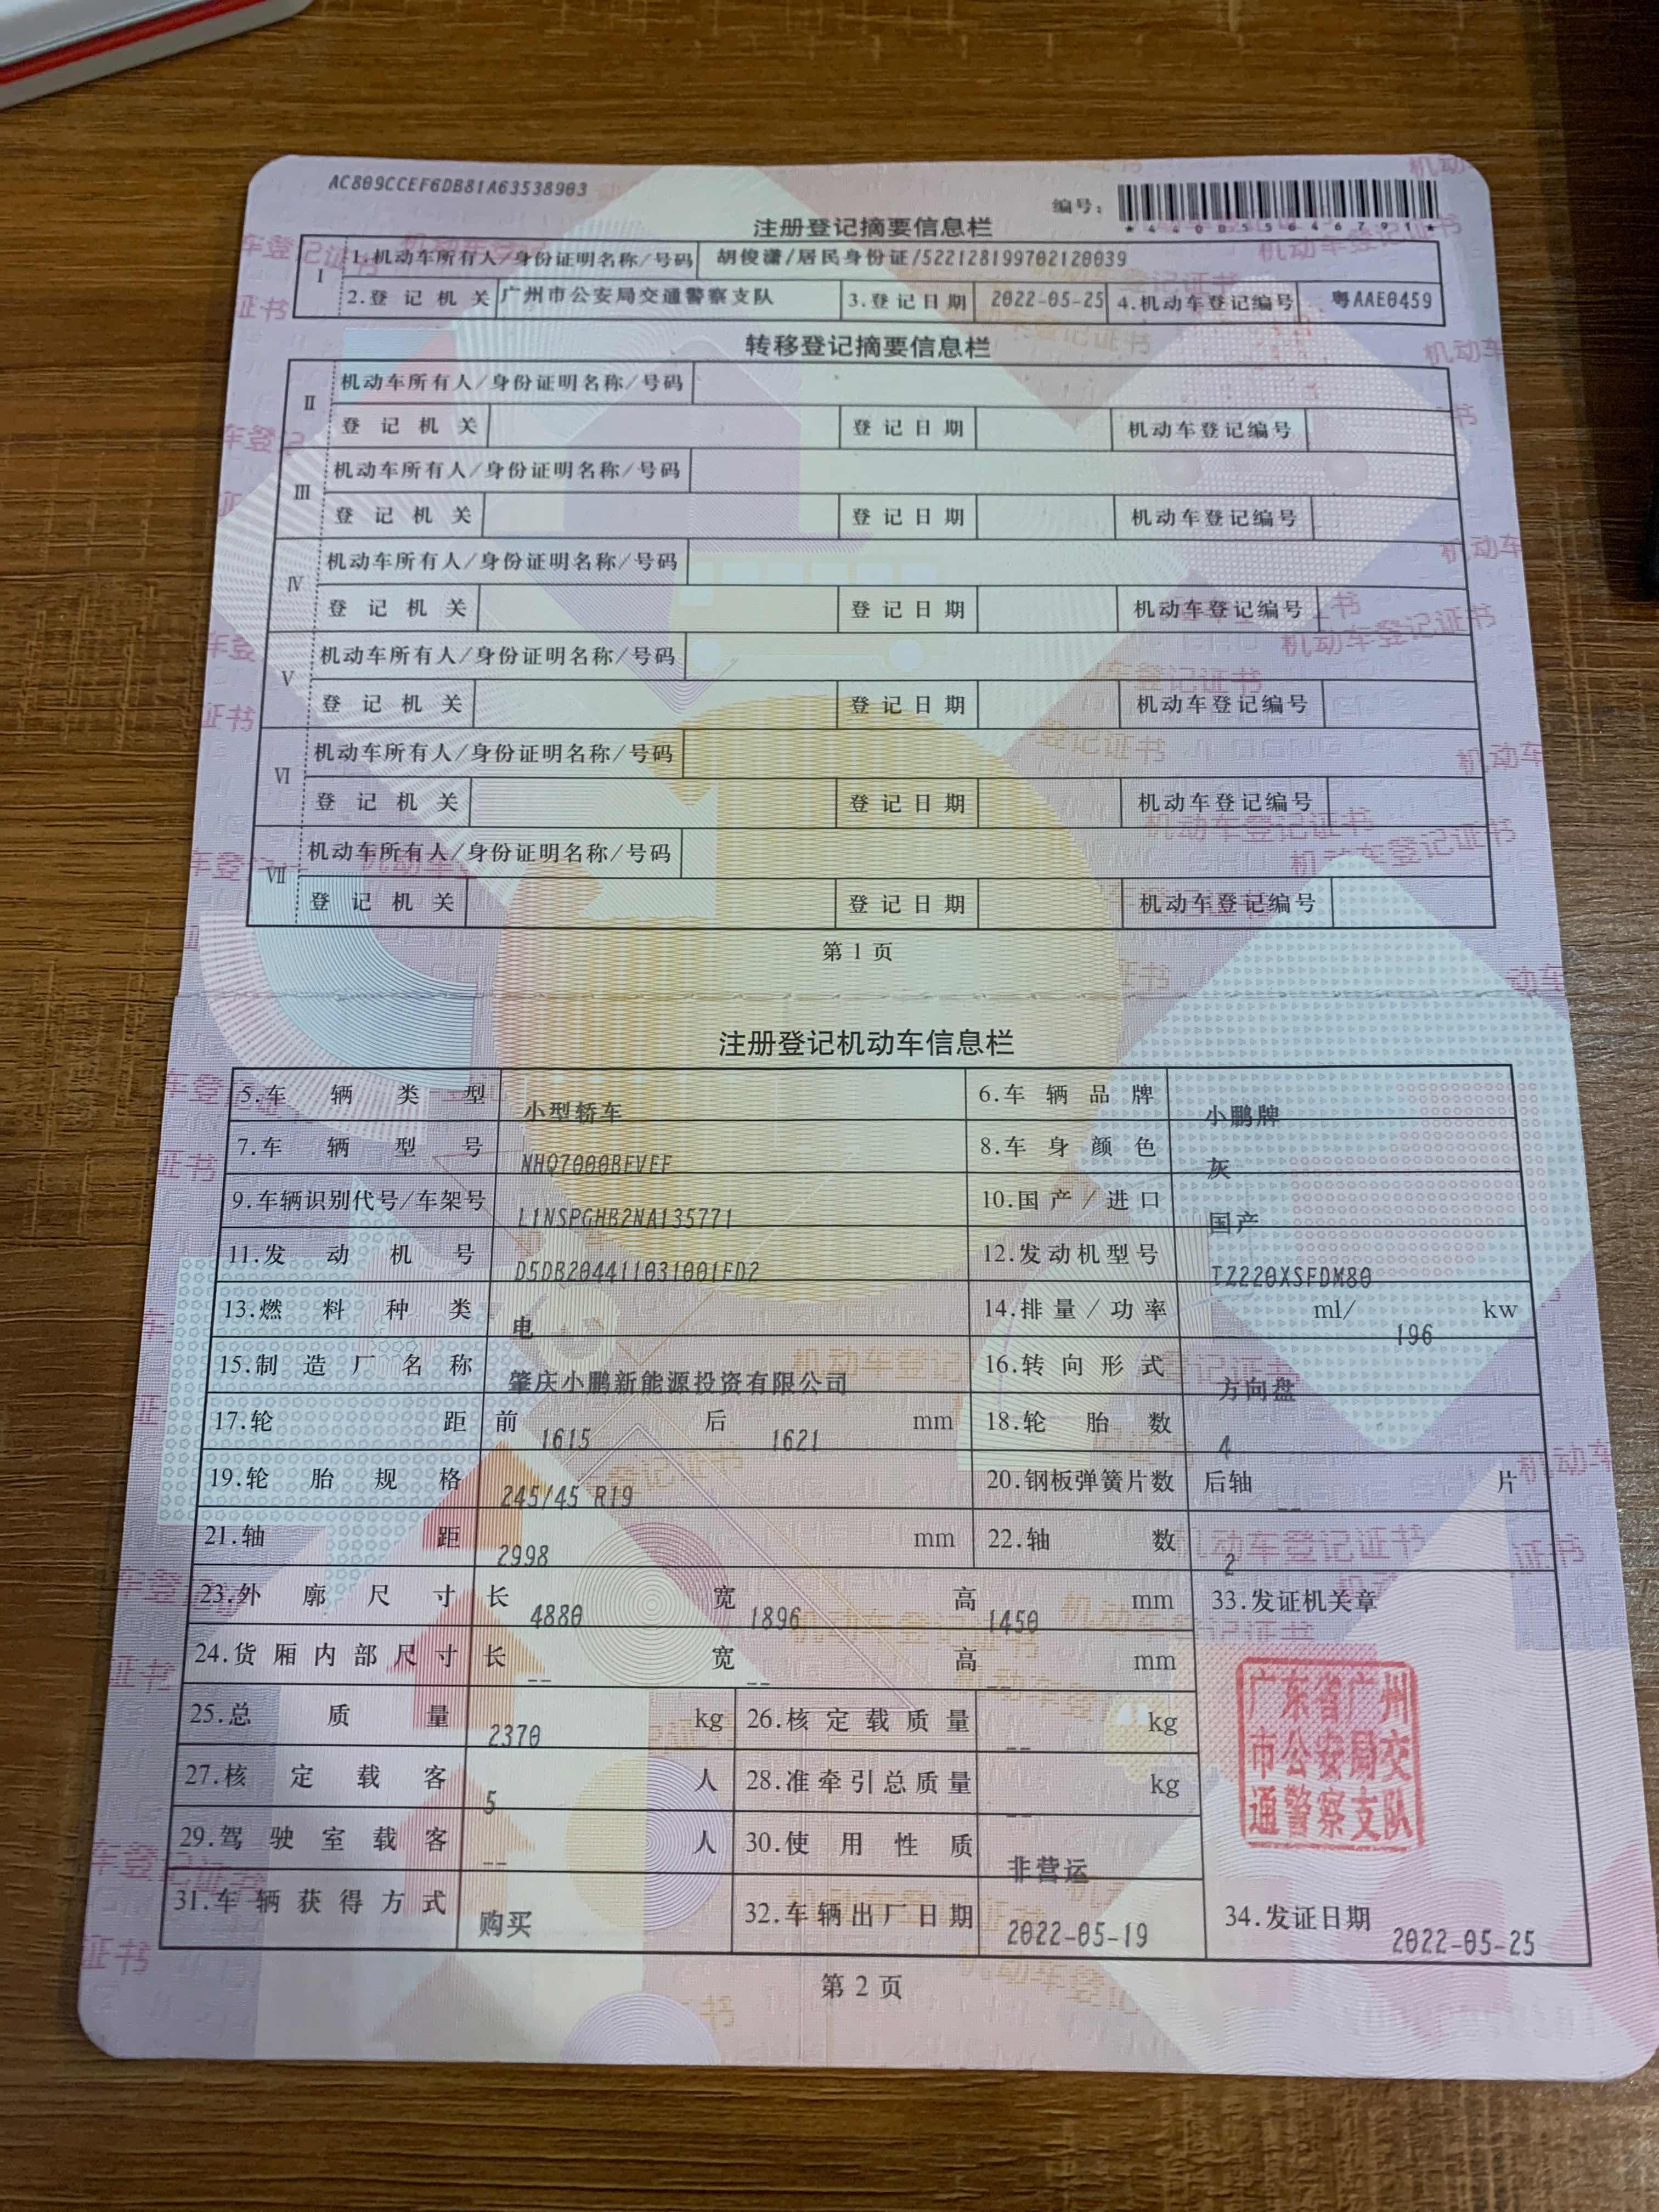 AC809CCEF6DB81A63538903
编号:
*440055646791*
注册登记摘要信息栏
I 1.机动车所有人/身份证明名称/号码 胡俊潇/居民身份证/522128199702120039
2.登记机关 广州市公安局交通警察支队 3.登记日期 2022-05-25 4.机动车登记编号 粤AAE0459
转移登记摘要信息栏
II 机动车所有人/身份证明名称/号码
登记机关 登记日期 机动车登记编号
III 机动车所有人/身份证明名称/号码
登记机关 登记日期 机动车登记编号
IV 机动车所有人/身份证明名称/号码
登记机关 登记日期 机动车登记编号
V 机动车所有人/身份证明名称/号码
登记机关 登记日期 机动车登记编号
VI 机动车所有人/身份证明名称/号码
登记机关 登记日期 机动车登记编号
VII 机动车所有人/身份证明名称/号码
登记机关 登记日期 机动车登记编号
第 1 页
注册登记机动车信息栏
5.车辆类型 小型轿车 6.车辆品牌 小鹏牌
7.车辆型号 NHQ7000BEVEF 8.车身颜色 灰
9.车辆识别代号/车架号 L1NSPGHB2NA135771 10.国产/进口 国产
11.发动机号 D5DB204411031001FD2 12.发动机型号 TZ220XSFDM80
13.燃料种类 电 14.排量/功率 ml/ 196 kw
15.制造厂名称 肇庆小鹏新能源投资有限公司 16.转向形式 方向盘
17.轮距 前 1615 后 1621 mm 18.轮胎数 4
19.轮胎规格 245/45 R19 20.钢板弹簧片数 后轴 -- 片
21.轴距 2998 mm 22.轴数 2
23.外廓尺寸 长 4880 宽 1896 高 1450 mm 33.发证机关章
24.货厢内部尺寸 长 -- 宽 -- 高 -- mm
25.总质量 2370 kg 26.核定载质量 -- kg
27.核定载客 5 人 28.准牵引总质量 -- kg
29.驾驶室载客 -- 人 30.使用性质 非营运
31.车辆获得方式 购买 32.车辆出厂日期 2022-05-19 34.发证日期 2022-05-25
广东省广州
市公安局交
通警察支队
第 2 页